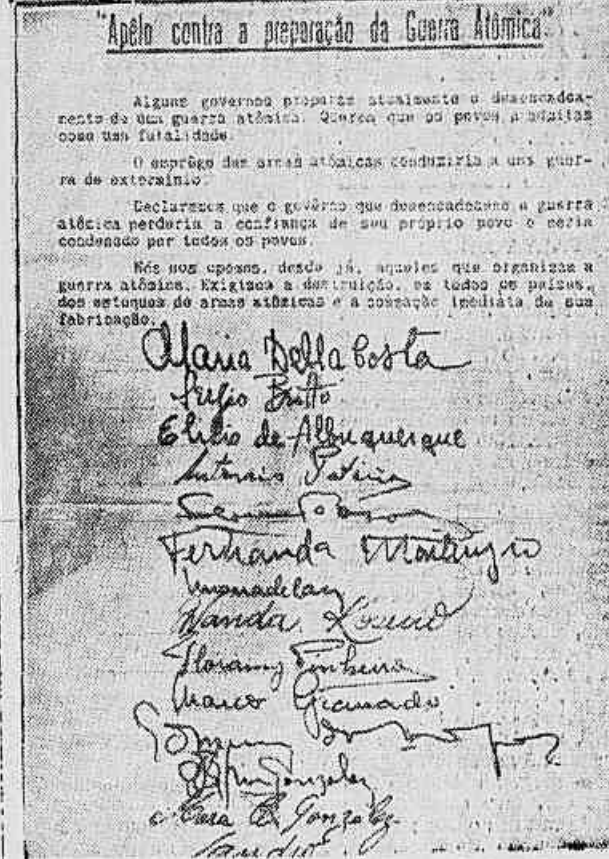 "Apêlo contra a preparação da Guerra Atômica"
Alguns governos preparam atualmente o desencadea-
mento de uma guerra atômica. Querem que os povos a admitam
como uma fatalidade.
O emprêgo das armas atômicas conduziria a uma guer-
ra de extermínio.
Declaramos que o govêrno que desencadeasse a guerra
atômica perderia a confiança de seu próprio povo e seria
condenado por todos os povos.
Nós nos opomos, desde já, aqueles que organizam a
guerra atômica. Exigimos a destruição, em todos os países,
dos estoques de armas atômicas e a cessação imediata de sua
fabricação.
Maria Della Costa
Sergio Britto
Elisio de Albuquerque
Fernanda Montenegro
Wanda
Floramy Pinheiro
Marco Granado
Gonzalez
B. Gonzalez